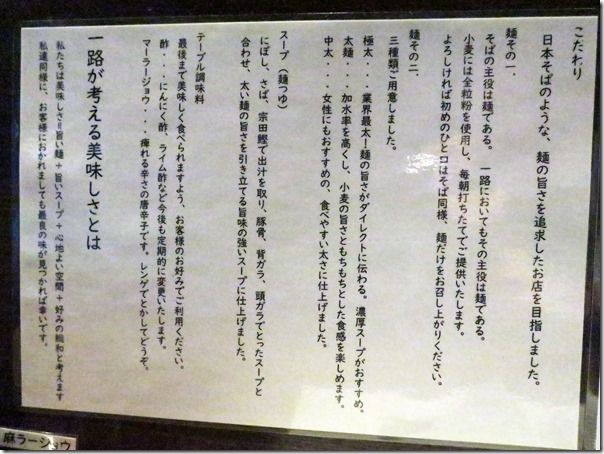 こだわり
日本そばのような、麺の旨さを追求したお店を目指しました。
麺その一、
そばの主役は麺である。 一路においてもその主役は麺である。
小麦には全粒粉を使用し、毎朝打ちたてでご提供いたします。
よろしければ初めのひと口はそば同様、麺だけをお召し上がりください。
麺その二、
三種類ご用意しました。
極太・・・業界最太！麺の旨さがダイレクトに伝わる。濃厚スープがおすすめ。
太麺・・・加水率を高くし、小麦の旨さともちもちとした食感を楽しめます。
中太・・・女性にもおすすめの、食べやすい太さに仕上げました。
スープ（麺つゆ）
にぼし、さば、宗田鰹で出汁を取り、豚骨、背ガラ、頭ガラでとったスープと
合わせ、太い麺の旨さを引き立てる旨味の強いスープに仕上げました。
テーブル調味料
最後まで美味しく食べられますよう、お客様のお好みでご利用ください。
酢・・・にんにく酢、ライム酢など今後も定期的に変更いたします。
マーラージョウ・・・痺れる辛さの唐辛子です。レンゲでとかしてどうぞ。
一路が考える美味しさとは
私たちは美味しさ＝旨い麺＋旨いスープ＋心地よい空間＋好みの総和と考えます
私達同様に、お客様におかれましても最良の味が見つかれば幸いです。
麻ラージョウ